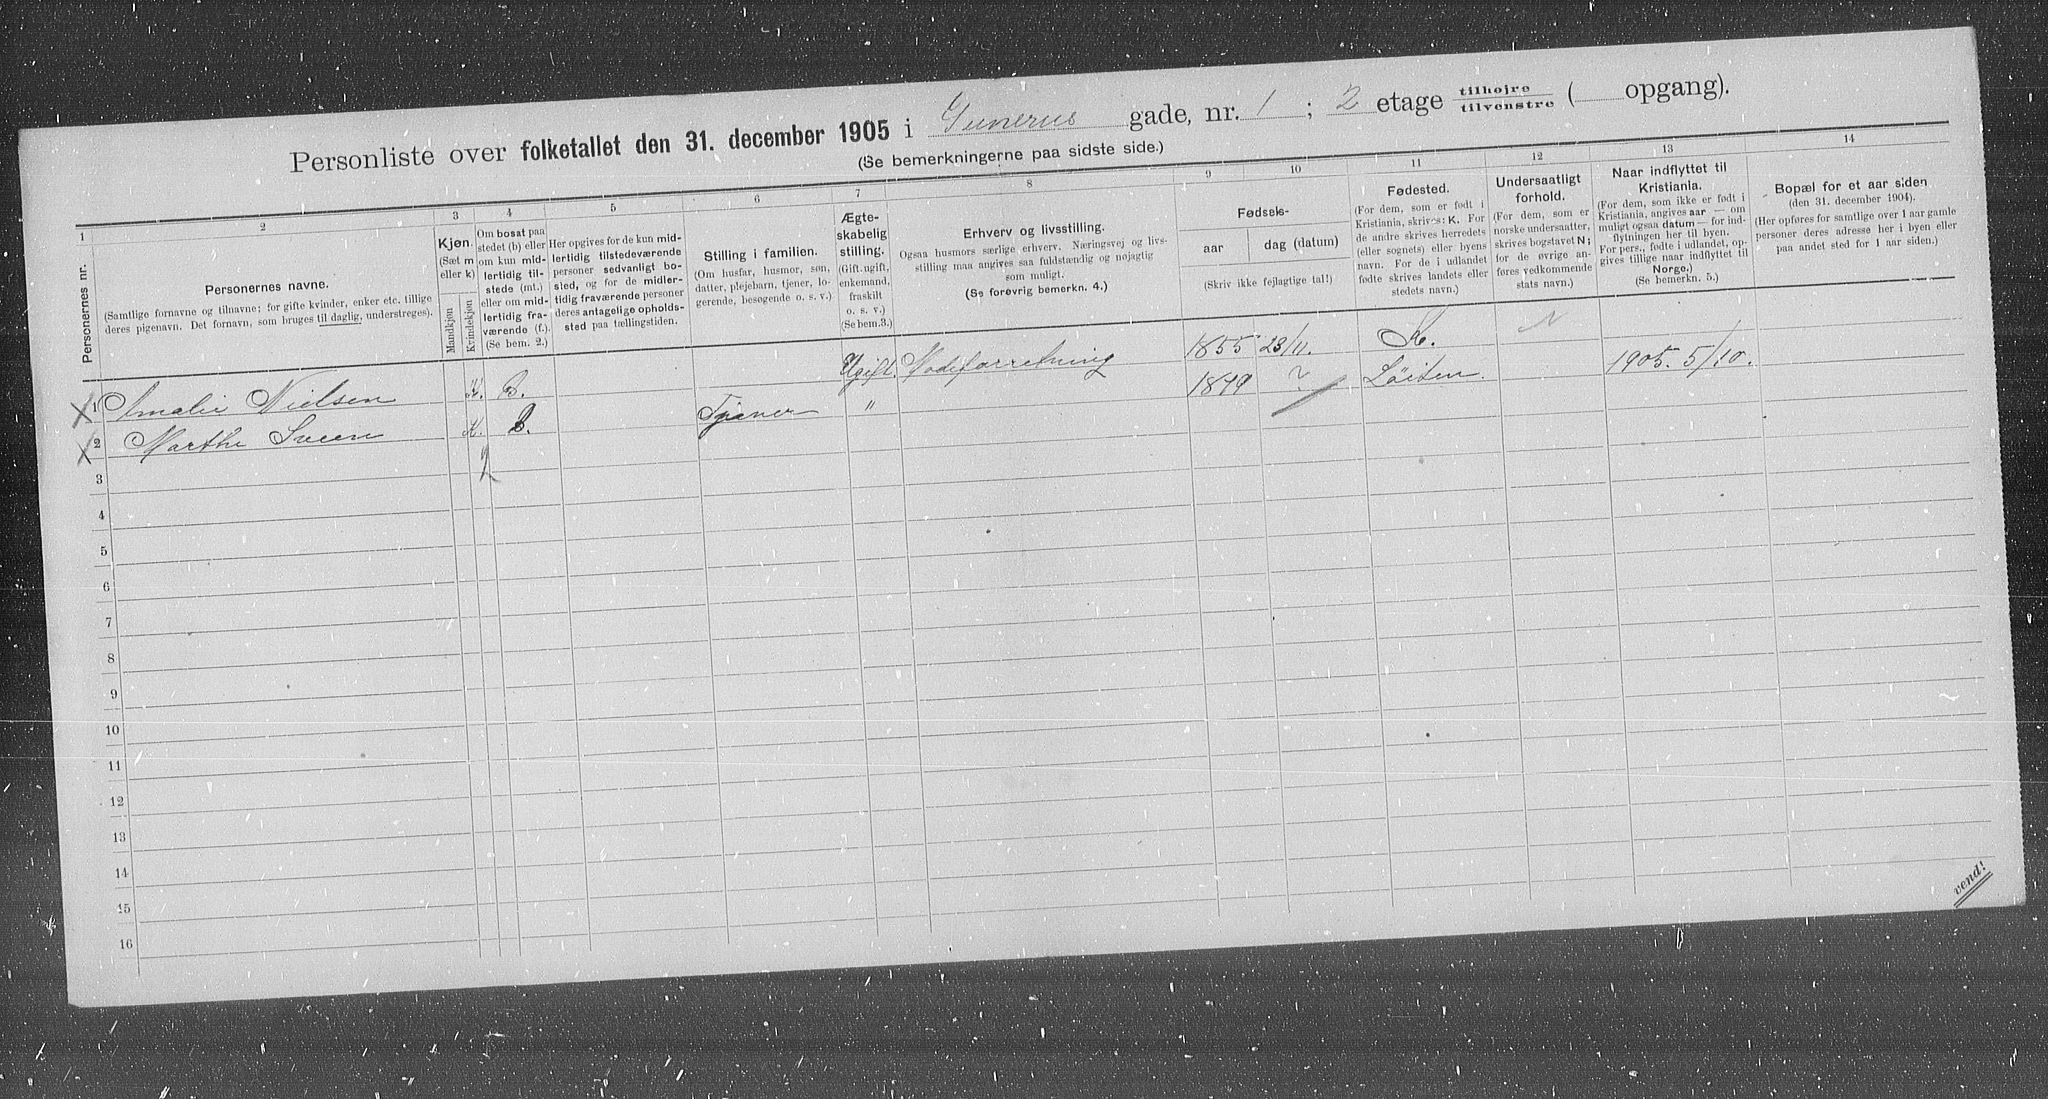 Personliste over folketallet den 31. december 1905 i Gunerus gade, nr. 1 ; 2 etage tilhøjre / tilvenstre ( opgang).
(Se bemerkningerne paa sidste side.)
1 2 3 4 5 6 7 8 9 10 11 12 13 14
Personernes nr.
Personernes navne.
(Samtlige fornavne og tilnavne; for gifte kvinder, enker etc. tillige
deres pigenavn. Det fornavn, som bruges til daglig, understreges).
Kjøn.
(Sæt m
eller k)
Mandkjøn
Kvindekjøn
Om bosat paa
stedet (b) eller
om kun mid-
lertidig til-
stede (mt.)
eller om mid-
lertidig fra-
værende (f.).
(Se bem. 2.)
Her opgives for de kun mid-
lertidig tilstedeværende
personer sedvanlig bo-
sted, og for de midler-
tidig fraværende personer
deres antagelige opholds-
sted paa tællingstiden.
Stilling i familien.
(Om husfar, husmor, søn,
datter, plejebarn, tjener, lo-
gerende, besøgende o. s. v.)
Ægte-
skabelig
stilling.
(Gift, ugift,
enkemand,
fraskilt
o. s. v.)
(Se bem.3.)
Erhverv og livsstilling.
Ogsaa husmors særlige erhverv. Næringsvej og livs-
stilling maa angives saa fuldstændig og nøjagtig
som muligt.
(Se forøvrig bemerkn. 4.)
Fødsels-
aar
dag (datum)
(Skriv ikke fejlagtige tal!)
Fødested.
(For dem, som er født i
Kristiania, skrives: K. For
de andre skrives herredets
(eller sognets) eller byens
navn. For de i udlandet
fødte skrives landets eller
stedets navn.)
Undersaatligt
forhold.
(For dem, som er
norske undersaatter,
skrives bogstavet N;
for de øvrige an-
føres vedkommende
stats navn.)
Naar indflyttet til
Kristiania.
(For dem, som ikke er født i
Kristiania, angives aar — om
muligt ogsaa datum — for ind-
flytningen her til byen.
For pers., fødte i udlandet, op-
gives tillige naar indflyttet til
Norge.)
(Se bemerkn. 5.)
Bopæl for et aar siden
(den 31. december 1904).
(Her opføres for samtlige over 1 aar gamle
personer deres adresse her i byen eller
paa andet sted for 1 aar siden.)
X 1 Amalie Nielsen K. B. Ugift. Modeforretning 1855 23/11. K. N
X 2 Marthe Sveen K. B. Tjener " 1879 ? Löiten. 1905. 5/10.
3 2
4
5
6
7
8
9
10
11
12
13
14
15
16
vend!